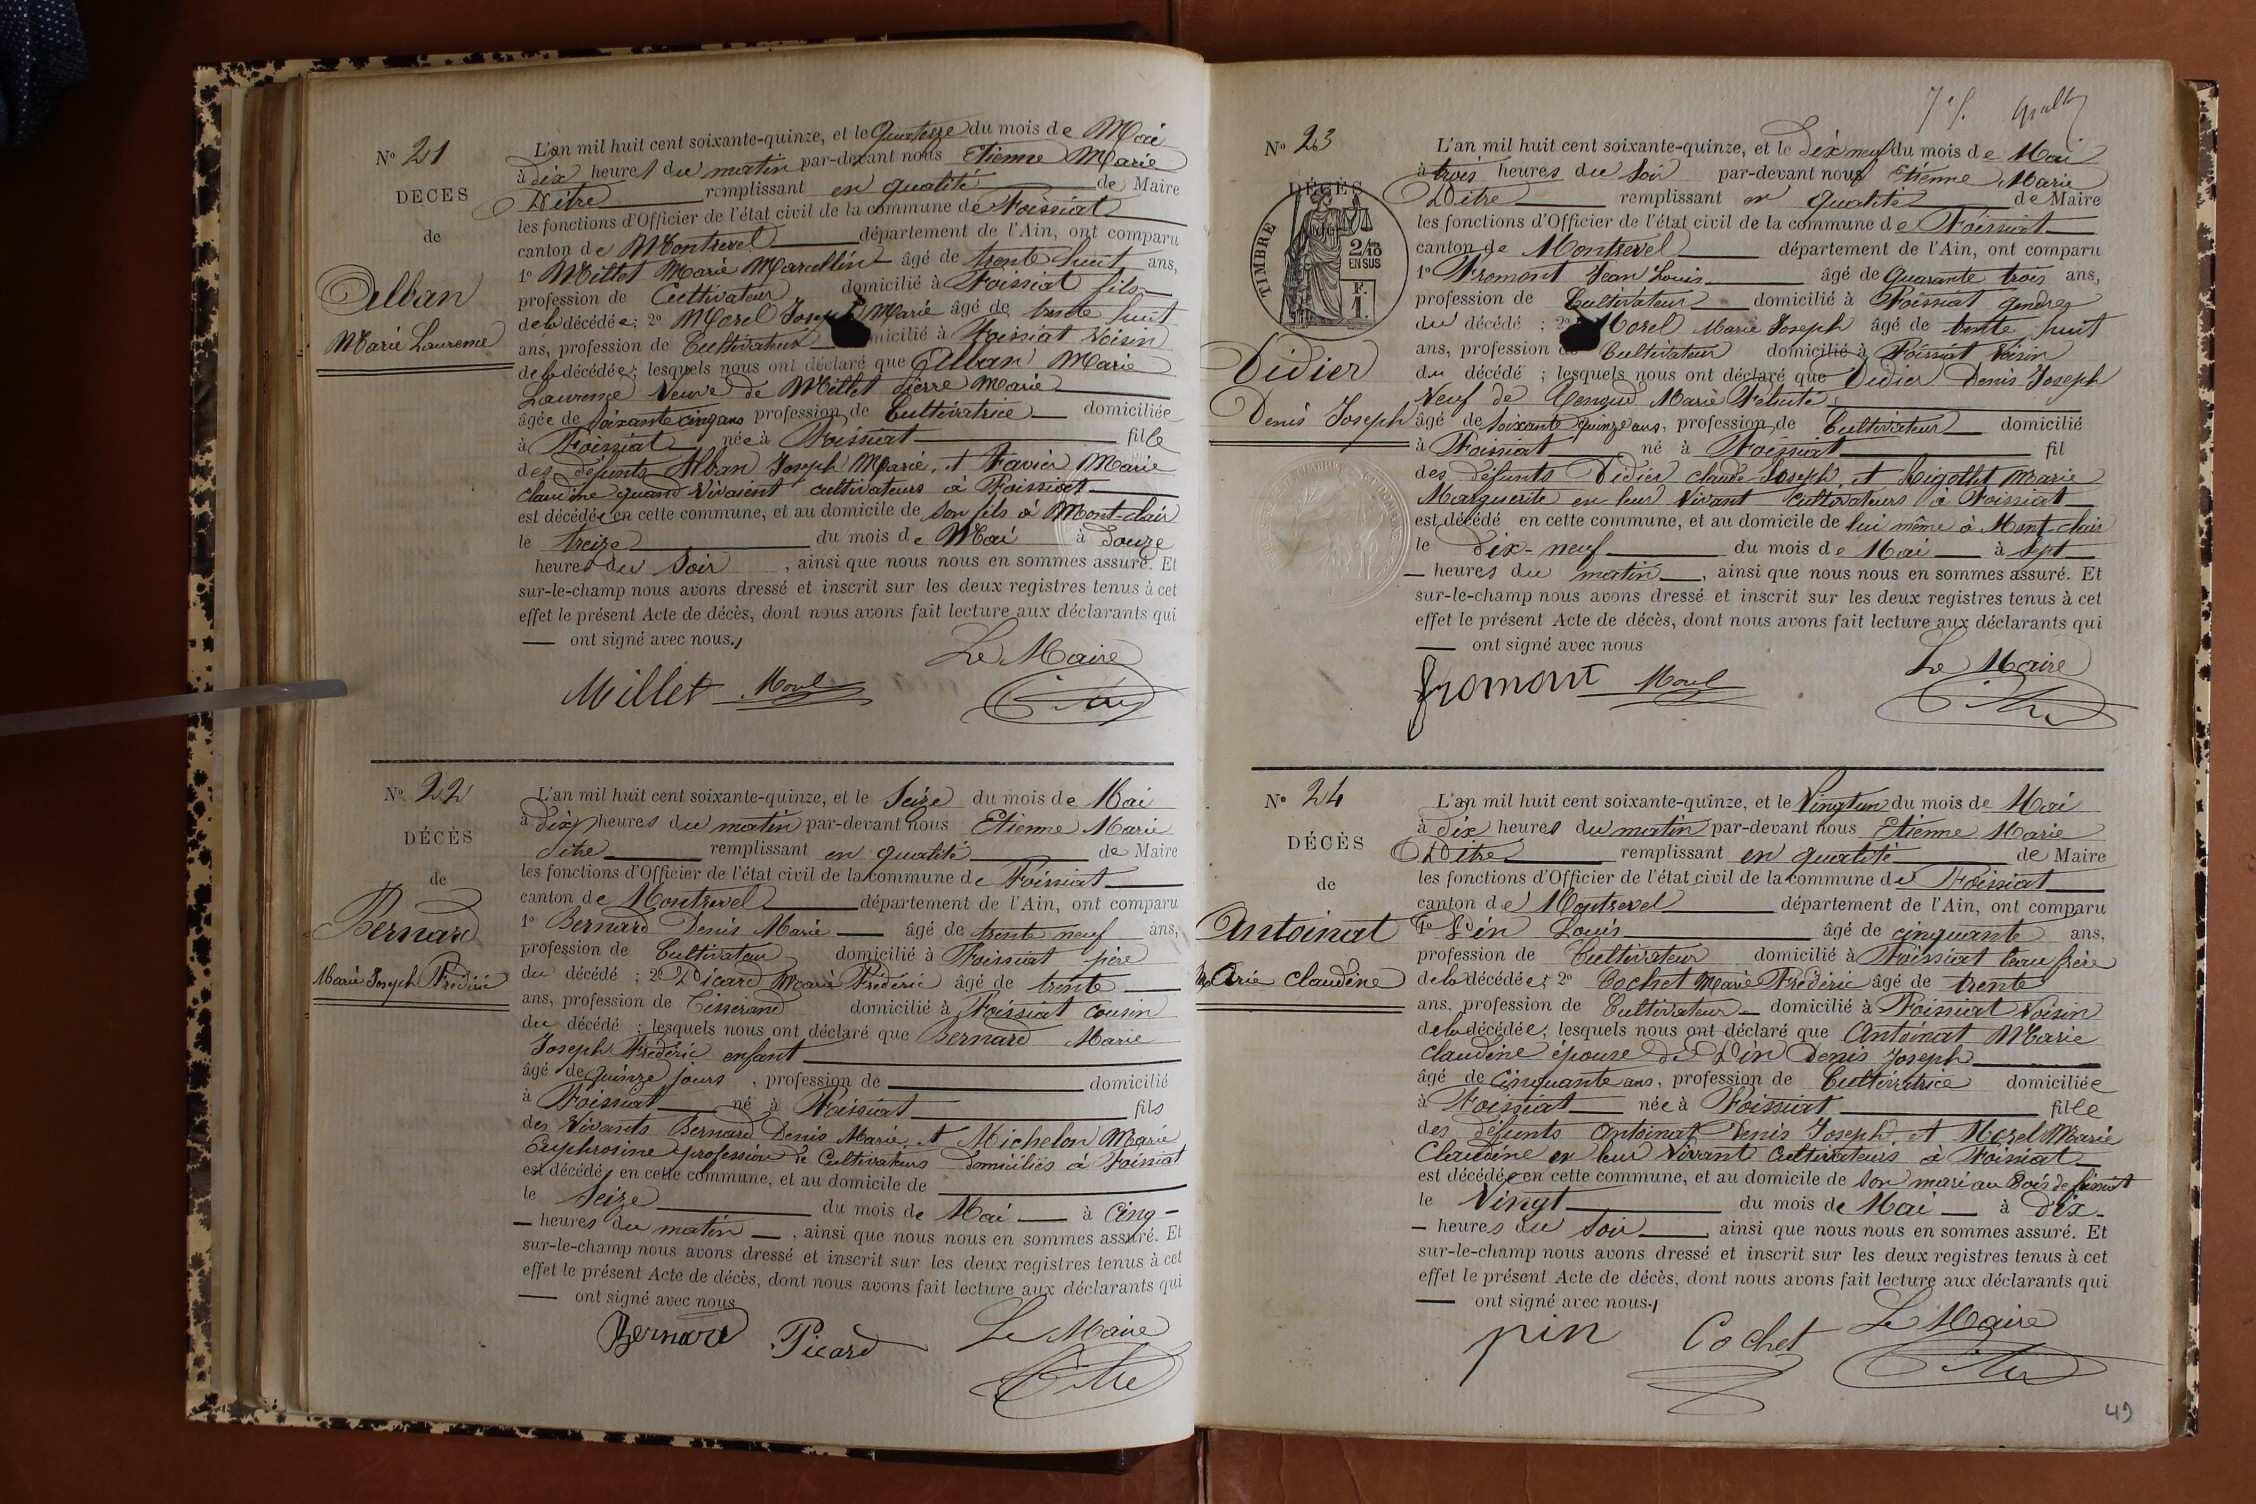 N° 21
DECES
de
Alban
Marie Laurence
L'an mil huit cent soixante-quinze, et le Quatorze du mois de Mai
à dix heures du matin par-devant nous Etienne Marie
Ditre remplissant en qualité de Maire
les fonctions d'Officier de l'état civil de la commune de Foissiat
canton de Montrevel département de l'Ain, ont comparu
1° Millet Marie Marcellin âgé de trente huit ans,
profession de Cultivateur domicilié à Foissiat fils
de la décédée; 2° Morel Joseph Marie âgé de trente huit
ans, profession de Cultivateur domicilié à Foissiat Voisin
de la décédée; lesquels nous ont déclaré que Alban Marie
Laurence Veuve de Millet pierre Marie
âgée de soixante cinq ans profession de Cultivatrice domiciliée
à Foissiat née à Foissiat fille
des défunts Alban Joseph Marie, et Favier Marie
claudine quand Vivaient cultivateurs à Foissiat
est décédée en cette commune, et au domicile de son fils à Mont-clair
le treize du mois de Mai à Douze
heures du Soir, ainsi que nous nous en sommes assuré. Et
sur-le-champ nous avons dressé et inscrit sur les deux registres tenus à cet
effet le présent Acte de décès, dont nous avons fait lecture aux déclarants qui
ont signé avec nous.
Le Maire
Millet Morel
N° 22
DÉCÈS
de
Bernard
Marie Joseph Frédéric
L'an mil huit cent soixante-quinze, et le Seize du mois de Mai
à dix heures du matin par-devant nous Etienne Marie
ditre remplissant en qualité de Maire
les fonctions d'Officier de l'état civil de la commune de Foissiat
canton de Montrevel département de l'Ain, ont comparu
1° Bernard Denis Marie âgé de trente neuf ans,
profession de Cultivateur domicilié à Foissiat père
du décédé; 2° Picard Marie Frédéric âgé de trente
ans, profession de Tisserand domicilié à Foissiat cousin
du décédé; lesquels nous ont déclaré que Bernard Marie
Joseph Frédéric enfant
âgé de quinze jours, profession de domicilié
à Foissiat né à Foissiat fils
des Vivants Bernard Denis Marie, et Michelon Marie
Euphrosine profession de Cultivateurs domiciliés à Foissiat
est décédé, en cette commune, et au domicile de
le Seize du mois de Mai à cinq
heures du matin, ainsi que nous nous en sommes assuré. Et
sur-le-champ nous avons dressé et inscrit sur les deux registres tenus à cet
effet le présent Acte de décès, dont nous avons fait lecture aux déclarants qui
ont signé avec nous
Bernard Picard Le Maire
Ditre
N° 23
DÉCÈS
TIMBRE
2/10
EN SUS
F.
1.
Didier
Denis Joseph
L'an mil huit cent soixante-quinze, et le Dix neuf du mois de Mai
à trois heures du Soir par-devant nous Etienne Marie
Ditre remplissant en qualité de Maire
les fonctions d'Officier de l'état civil de la commune de Foissiat
canton de Montrevel département de l'Ain, ont comparu
1° Fromont Jean Louis âgé de Quarante trois ans,
profession de Cultivateur domicilié à Foissiat gendre
du décédé; 2° Morel Marie Joseph âgé de trente huit
ans, profession de Cultivateur domicilié à Foissiat Voisin
du décédé; lesquels nous ont déclaré que Didier Denis Joseph
Veuf de Marie
âgé de Soixante Quinze ans, profession de Cultivateur domicilié
à Foissiat né à Foissiat fil
des défunts Didier claude Joseph, et Rigollet Marie
Marguerite en leur Vivant Cultivateurs à Foissiat
est décédé en cette commune, et au domicile de lui même à Mont-clair
le dix-neuf du mois de Mai à Sept
heures du matin, ainsi que nous nous en sommes assuré. Et
sur-le-champ nous avons dressé et inscrit sur les deux registres tenus à cet
effet le présent Acte de décès, dont nous avons fait lecture aux déclarants qui
ont signé avec nous
Le Maire
fromont Morel
N° 24
DÉCÈS
de
Antoinat
Marie claudine
L'an mil huit cent soixante-quinze, et le Vingt un du mois de Mai
à dix heures du matin par-devant nous Etienne Marie
Ditre remplissant en qualité de Maire
les fonctions d'Officier de l'état civil de la commune de Foissiat
canton de Montrevel département de l'Ain, ont comparu
1° Pin Louis âgé de cinquante ans,
profession de Cultivateur domicilié à Foissiat beau frère
de la décédée; 2° Cochet Marie Frédéric âgé de trente
ans, profession de Cultivateur domicilié à Foissiat Voisin
de la décédée; lesquels nous ont déclaré que Antoinat Marie
claudine épouse de Pin Denis Joseph
âgé de Cinquante ans, profession de Cultivatrice domiciliée
à Foissiat née à Foissiat fille
des défunts Antoinat Denis Joseph, et Morel Marie
Claudine en leur Vivant Cultivateurs à Foissiat
est décédée en cette commune, et au domicile de son mari au Bois de foissiat
le Vingt du mois de Mai à Dix
heures du Soir, ainsi que nous nous en sommes assuré. Et
sur-le-champ nous avons dressé et inscrit sur les deux registres tenus à cet
effet le présent Acte de décès, dont nous avons fait lecture aux déclarants qui
ont signé avec nous.
pin Cochet Le Maire
49